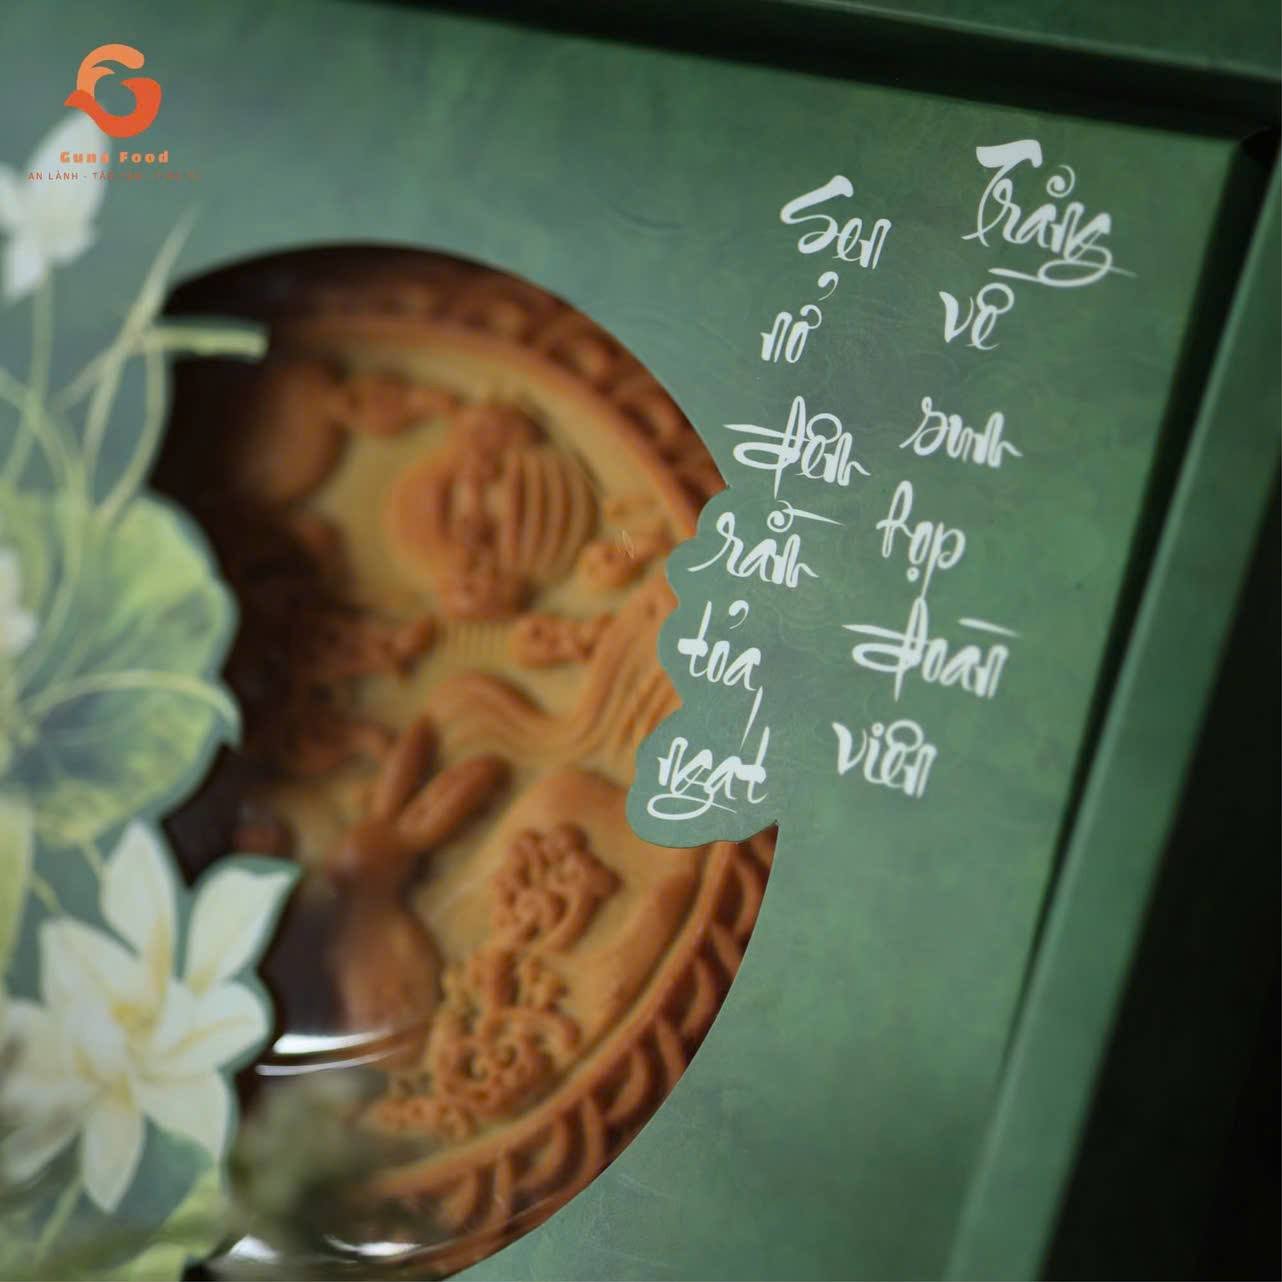 Guna Food
AN LÀNH -
Trăng về sum họp đoàn viên
Sen nở đêm rằm tỏa ngát